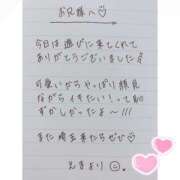 お兄様へ♡
今日は遊びに来てくれて
ありがとうございました
可愛いからやっぱり顔見
ながらイキたい！って
ずかしかったよ〜!!!
また埼玉来たらぜひ♡
より☺